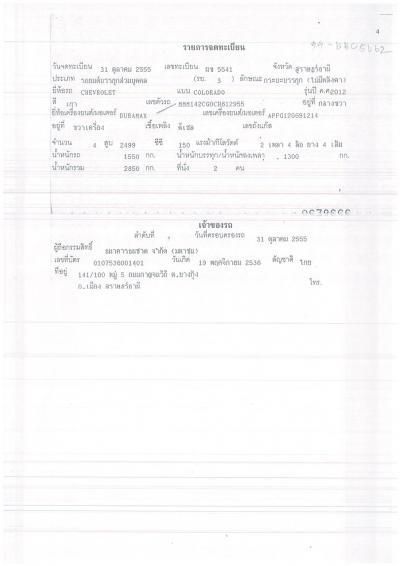 4
รายการจดทะเบียน
วันจดทะเบียน 31 ตุลาคม 2555 เลขทะเบียน ผข 5541 จังหวัด สุราษฎร์ธานี
ประเภท รถยนต์บรรทุกส่วนบุคคล (รย. 3 ) ลักษณะ กระบะบรรทุก (ไม่มีหลังคา)
ยี่ห้อรถ CHEVROLET แบบ COLORADO รุ่นปี ค.ศ2012
สี เทา เลขตัวรถ MMM142CG0CH612955 อยู่ที่ กลางขวา
ยี่ห้อเครื่องยนต์/มอเตอร์ DURAMAX เลขเครื่องยนต์/มอเตอร์ APFG120691214
อยู่ที่ ขวาเครื่อง เชื้อเพลิง ดีเซล เลขถังแก๊ส
จำนวน 4 สูบ 2499 ซีซี 150 แรงม้า/กิโลวัตต์ 2 เพลา 4 ล้อ ยาง 4 เส้น
น้ำหนักรถ 1550 กก. น้ำหนักบรรทุก/น้ำหนักลงเพลา 1300 กก.
น้ำหนักรวม 2850 กก. ที่นั่ง 2 คน
เจ้าของรถ
ลำดับที่ วันที่ครอบครองรถ 31 ตุลาคม 2555
ผู้ถือกรรมสิทธิ์ ธนาคารธนชาต จำกัด (มหาชน)
เลขที่บัตร 0107536001401 วันเกิด 19 พฤศจิกายน 2536 สัญชาติ ไทย
ที่อยู่ 141/100 หมู่ 5 ถนนกาญจนวิถี ต.บางกุ้ง
อ.เมือง สุราษฎร์ธานี โทร.